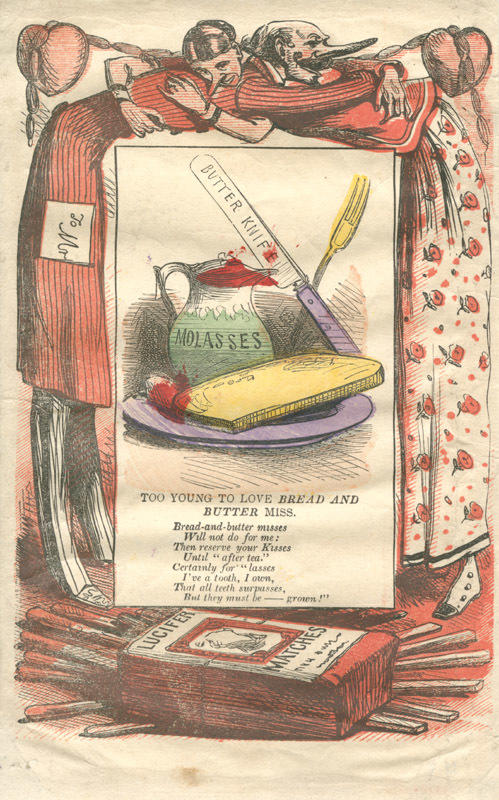 BUTTER KNIFE
To Mr
MOLASSES
TOO YOUNG TO LOVE BREAD AND
BUTTER MISS.
Bread-and-butter misses
Will not do for me:
Then reserve your Kisses
Until "after tea."
Certainly for "lasses
I've a tooth, I own,
That all teeth surpasses,
But they must be — grown!"
LUCIFER
MATCHES